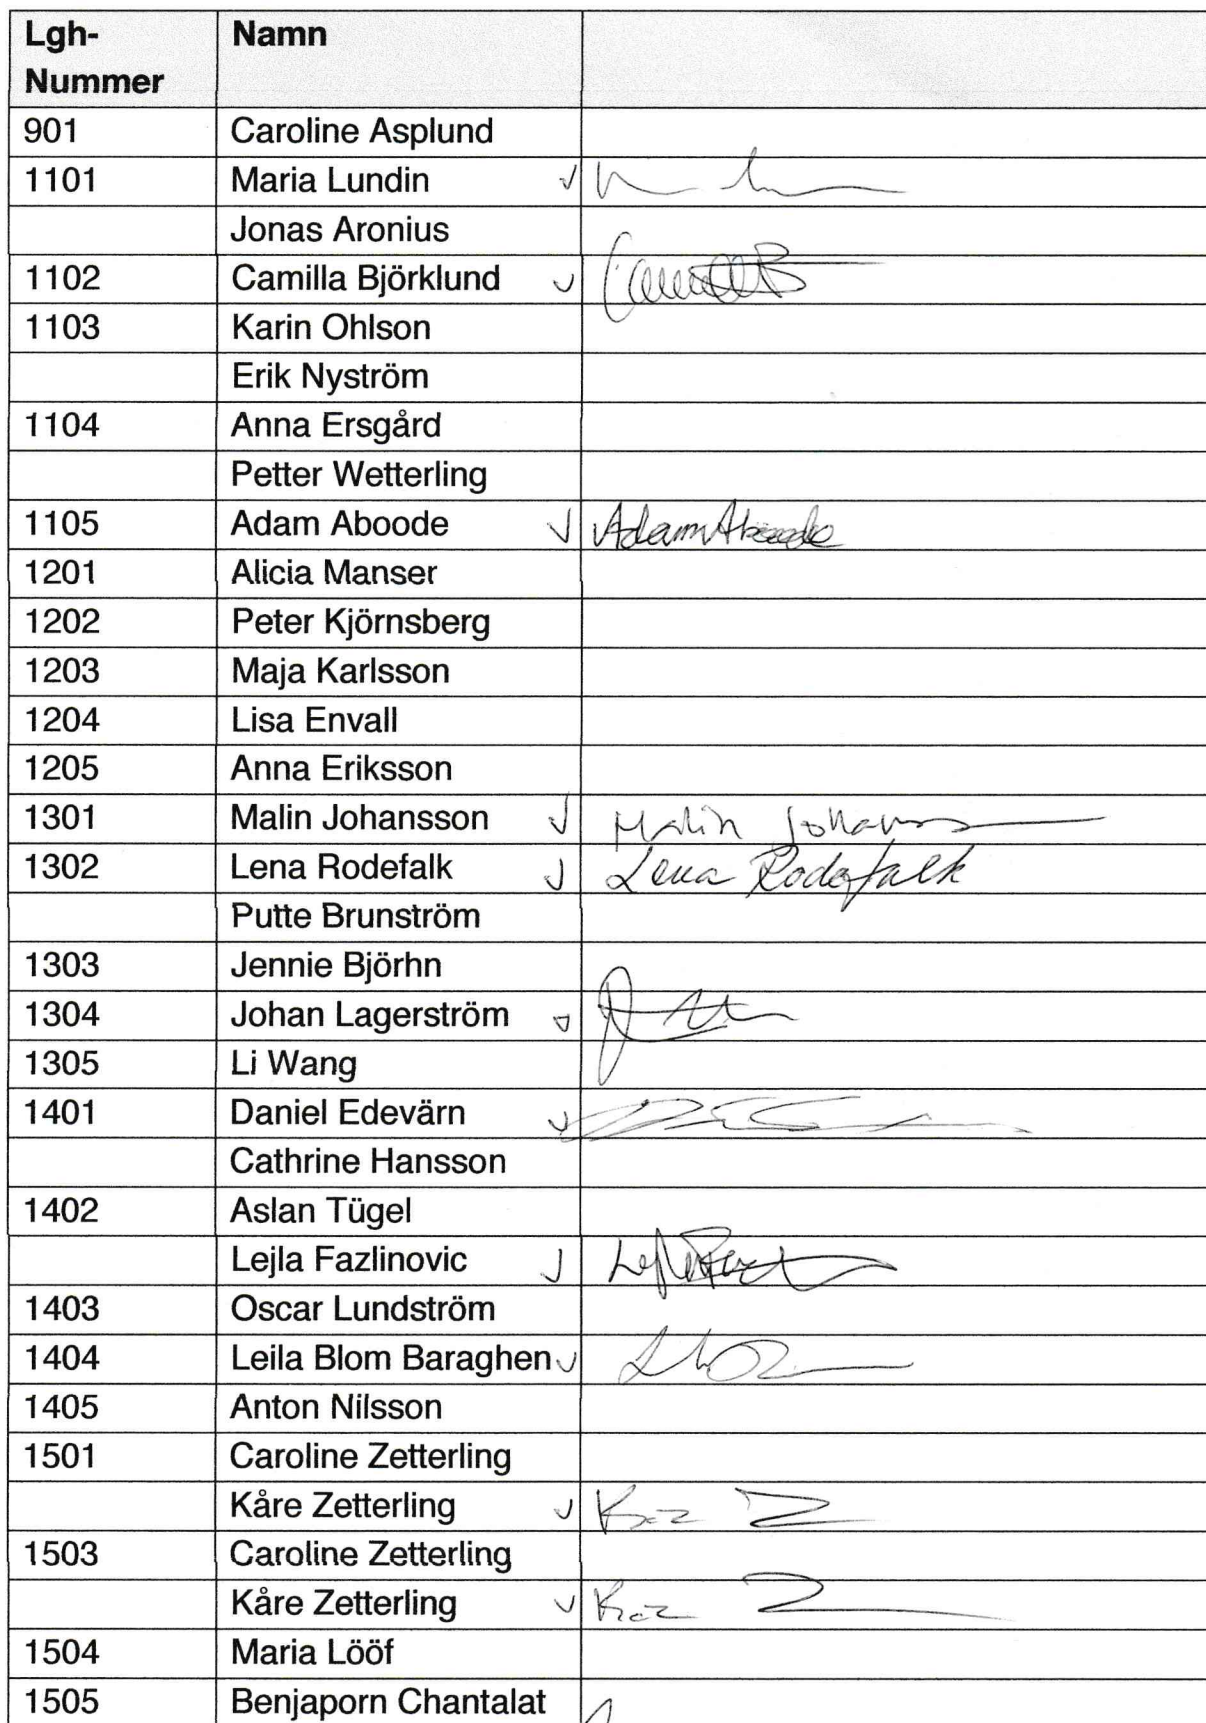 Lgh-Nummer Namn
901 Caroline Asplund
1101 Maria Lundin
Jonas Aronius
1102 Camilla Björklund
1103 Karin Ohlson
Erik Nyström
1104 Anna Ersgård
Petter Wetterling
1105 Adam Aboode Adam Aboode
1201 Alicia Manser
1202 Peter Kjörnsberg
1203 Maja Karlsson
1204 Lisa Envall
1205 Anna Eriksson
1301 Malin Johansson Malin
1302 Lena Rodefalk Lena Rodefalk
Putte Brunström
1303 Jennie Björhn
1304 Johan Lagerström
1305 Li Wang
1401 Daniel Edevärn
Cathrine Hansson
1402 Aslan Tügel
Lejla Fazlinovic
1403 Oscar Lundström
1404 Leila Blom Baraghen
1405 Anton Nilsson
1501 Caroline Zetterling
Kåre Zetterling
1503 Caroline Zetterling
Kåre Zetterling
1504 Maria Lööf
1505 Benjaporn Chantalat